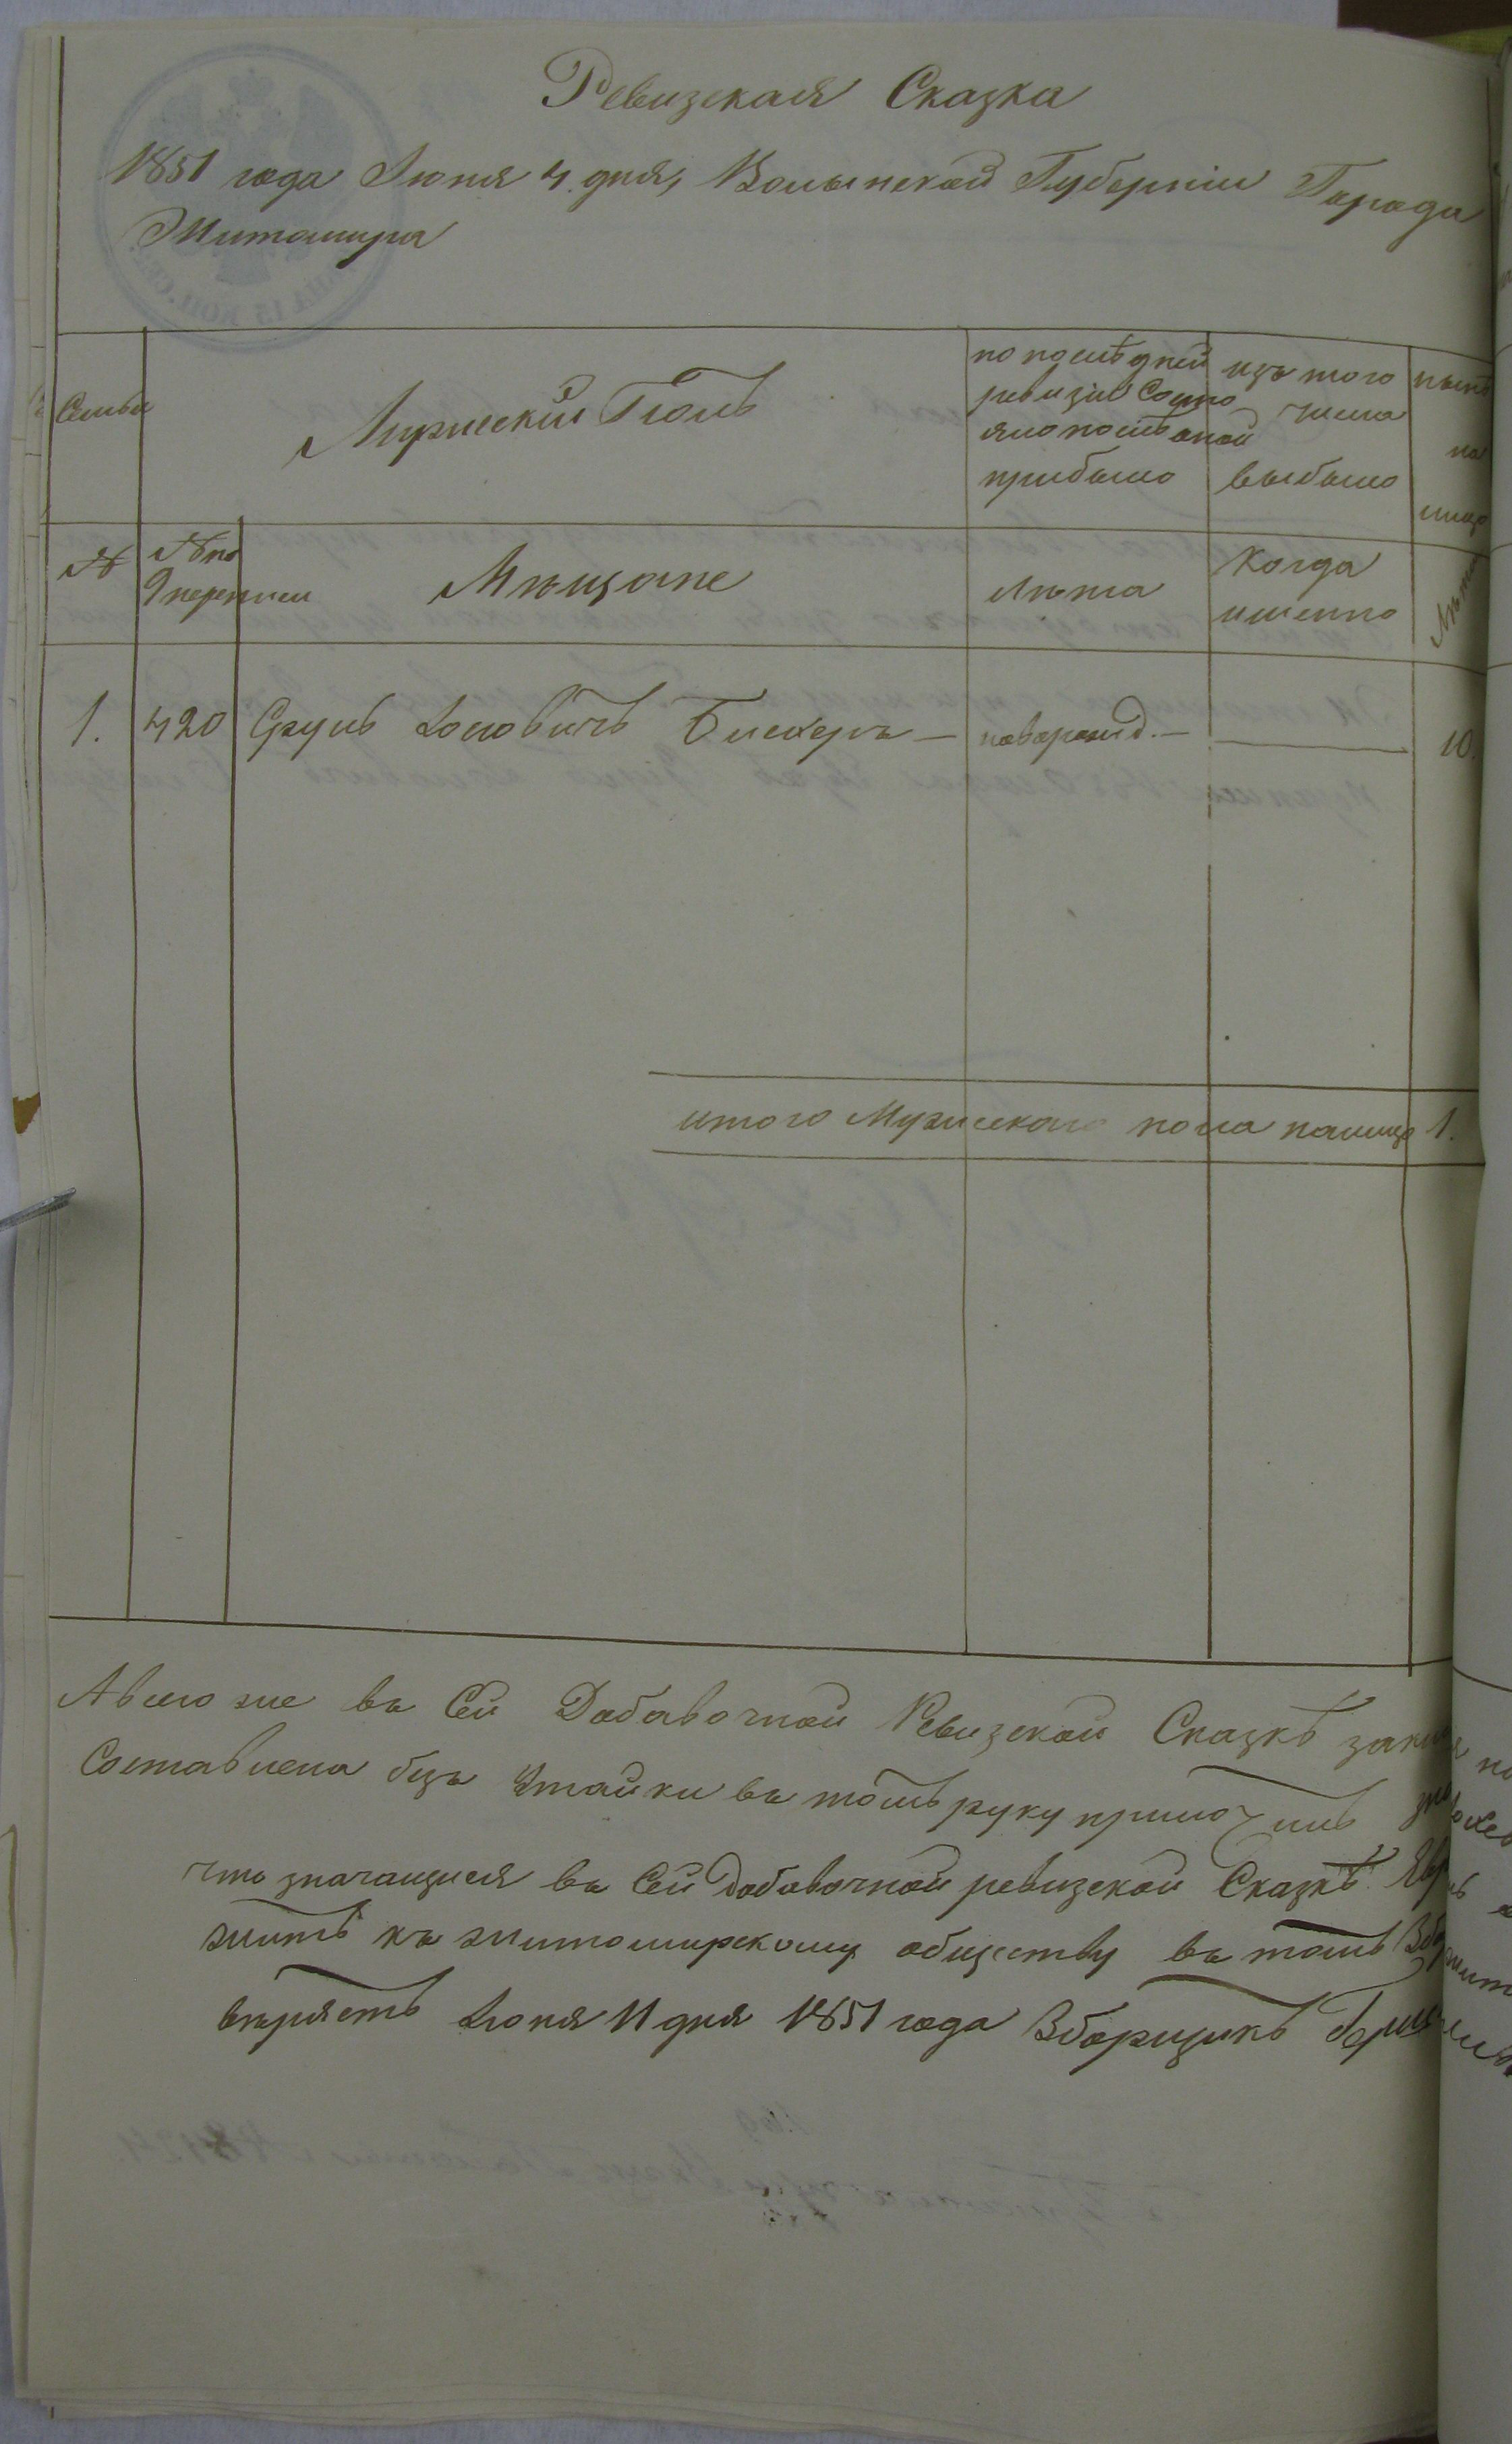 Ревизская Сказка
1851 года Июня 4. дня, Волынской Губернiи Города
Житомира
Семьи
Мужескiй Полъ
по послѣдней
ревизiи Состо
яло и послѣ оной
прибыло
изъ того
числа
выбыло
нынѣ
на
лицо
№
№ по
9 переписи
Мѣщане
Лѣта
Когда
именно
Лѣта
1.
420
Срулъ Iосiовичъ Бискеръ —
новорожд. —
10.
итого Мужескаго пола налицо 1.
А всего же въ Сей Добавочной Ревизской Сказкѣ
Составлена безъ Утайки въ томъ руку приложилъ
что значащiеся въ Сей Добавочной ревизской Сказкѣ
жить къ житомирскому обществу въ томъ
вѣряетъ Iюня 11 дня 1851 года Зборщикъ